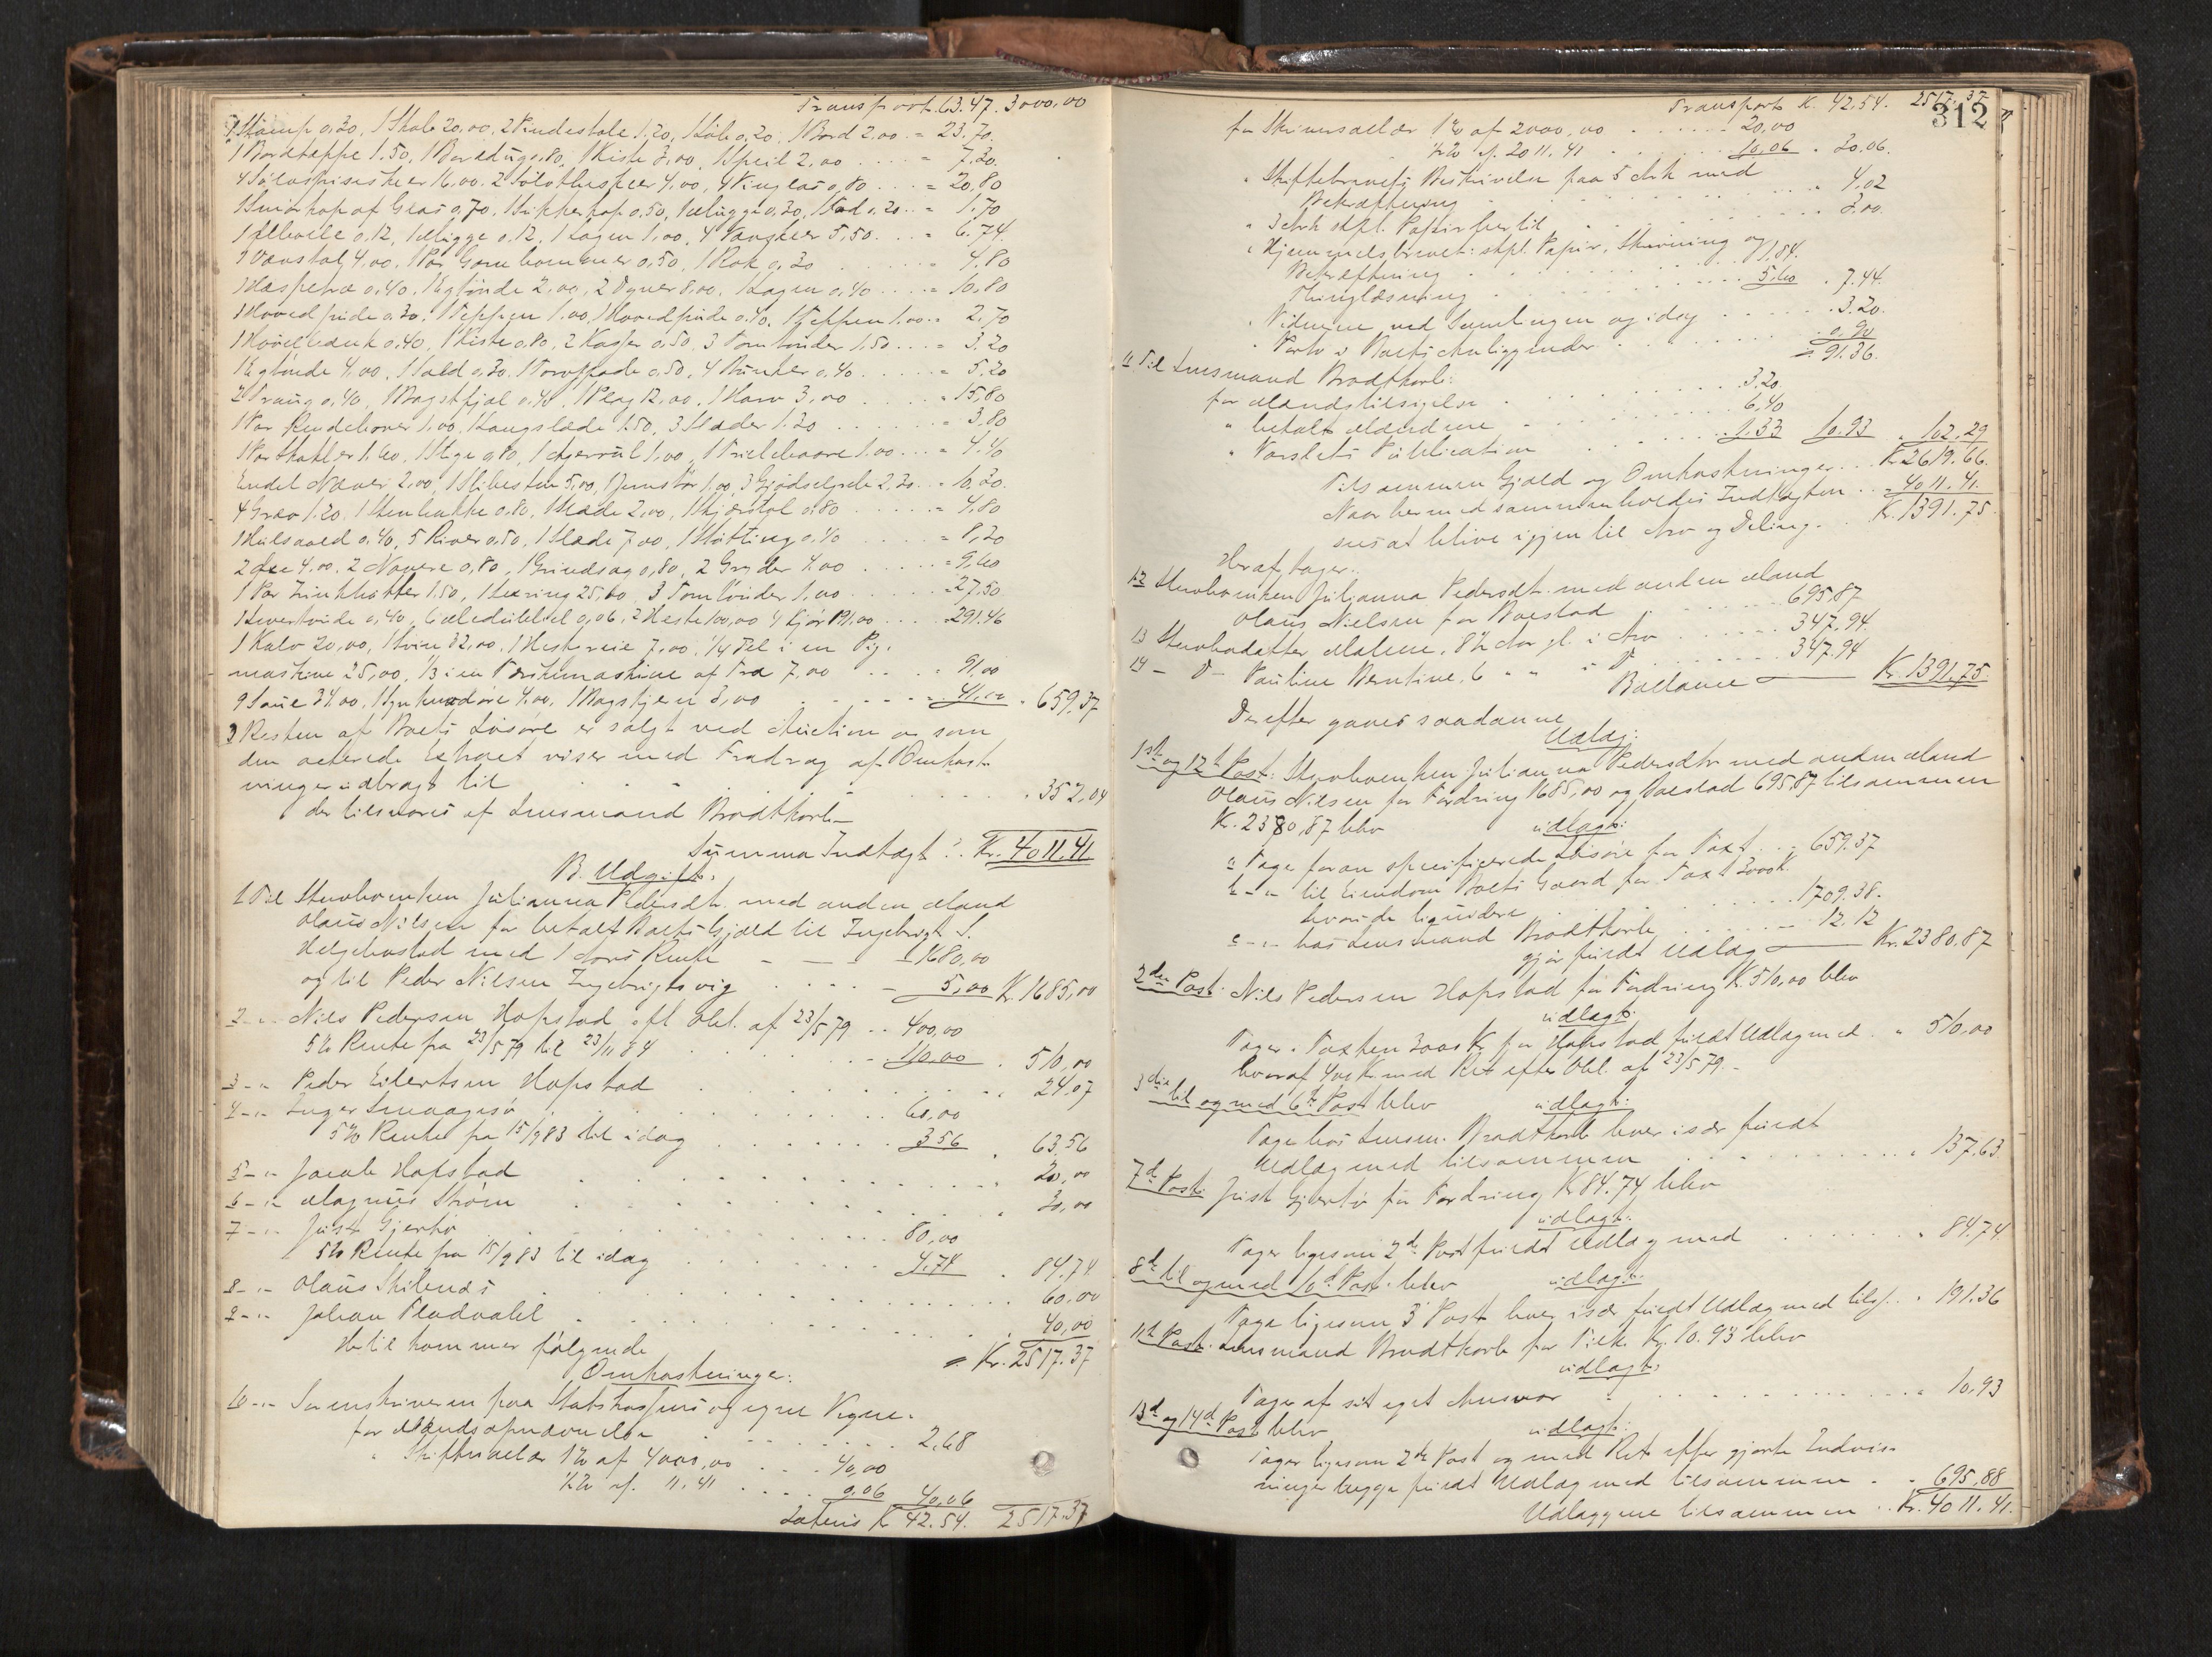 Transport. 63.47. 3000,00
1 Stamp 0,30, 1 Skab 20,00, 2 Pindestole 1,20, 1 Kob 0,20, 1 Bord 2,00 = 23.70
1 Bordteppe 1.50, 1 Borddug 0,80, 1 Kiste 3,00, 1 Speil 2,00 . . . = 7,30.
4 Sølvspiseskeer 16,00. 2 Sølvtheskeer 4,00, 4 Vinglas 0,80 . . . = 20,80
1 Smørkop af Glas 0,70, 1 Sukkerkop 0,50, 1 Mugge 0,30, 1 Fad 0,20 . . = 1.70
1 0,12, 1 Mugge 0,12, 1 Lagen 1,00, 4 5,50 . . . = 6.74.
1 Vævstol 4,00, 1 Par 0,50, 1 Rok 0,30 . . . = 4.80
1 Haspetræ 0,40. 1 Egtønde 2,00, 2 Dyner 8,00. 1 Lagen 0,40 . . . = 10,80
1 Hovedpude 0,30. 1 Teppen 1.00, 1 Hovedpude 0.40, 1 Teppen 1.00 . = 2.70
1 Høvelbænk 0,40, 1 Kiste 0,80, 2 Kasser 0,50, 3 Tomtønder 1.50 . . . = 3.20
1 Egtønde 4,00, 1 0,30, 1 Torvspade 0,50, 4 0,40 . . . = 5.20
2 Traug 0,40, 1 Bagstfjøl 0,40, 1 Plog 12,00, 1 Harv 3,00 . . . = 15,80
1 Par 1,00, 1 Langslæde 1.50, 3 Slæder 1.30 . . . = 3.80
1 Par Skakler 1.60, 1 Stige 0,80, 1 Kjærrul 1,00, 1 Trillebaare 1.00 . . . = 4.40
Endel Næver 2,00, 1 Slibesten 5,00, 1 Jernstør 1,00, 3 2.30 . . = 10,30.
4 Græv 1.20. 1 0.80, 1 Slæde 2,00, 1 0.80 . . . = 4,80
1 0.40, 5 River 0.50, 1 Slæde 7,00, 1 0,40 . . . = 8,30
2 4.00. 2 Navere 0,80, 1 Grindsag 0,80, 2 Gryder 4.00 . . . = 9,60
1 Par 1.50, 1 25,00, 3 Tomtønder 1.00 . . . = 27,50
1 0,40, 6 0,06, 2 Heste 100,00 4 Kjør 191.00 . . . = 291.46
1 Kalv 20,00, 1 32,00, 1 7,00. 1/4 Del i en Rg.
maskine 25,00, 1/3 i en Tærskemaskine af Træ 7,00 . . . = 91,00
9 Saue 34.00, 4.00, 3,00 . . . = 41,00 . 659.37
3 Resten af Boets Løsøre er solgt ved Auction og som
den acterede Extract viser med Fradrag af Omkost-
ninger udbragt til . . . . 352,04
der tilsvares af Lensmand Brodtkorb
Summa Indtægt: Kr. 4011.41
B. Udgift:
1 Til Stervboenken Julianna Pedersdtr. med anden Mand
Olaus Nilsen for betalt Boets Gjæld til Ingebrigt S.
Helgebostad med 1 Aars Rente – – – 1680,00
og til Peder Nilsen Ingebrigtsvig . . . . – 5,00 Kr. 1685,00
2 – " – Nils Pedersen Hopstad eft. Obl. af 23/5 79 . . 400,00
5 % Rente fra 23/5 79 til 23/11 84 . . . 110,00 . 510,00
3 – " Peder Eilertsen Hopstad . . . . 24,07
4 – " – Inger Smaagesø . . . . 60,00
5 % Rente fra 15/9 83 til idag . . . . 3.56 . 63,56
5 – " – Jacob Hopstad . . . . 20,00
6 – " – Magnus Strøm . . . . 30,00
7 – " – Just Gjertø . . . . 80,00
5 % Rente fra 15/9 83 til idag . . . . 4.74 . 84,74
8 – " – Olaus Skilnes . . . . 60,00
9 – " – Johan Fladvahl . . . . 40,00
Hertil kommer følgende = Kr. 2517.37
Omkostninger:
10 – " – Sorenskriveren paa Statskassens og egne Vegne.
for Mændsopnævnelse . . . . 2,48
" Skiftesalær 1 % af 4000,00 . . . 40,00
1/2 % af 11.41 . . . . 0,06 40,06
Lateris K 42.54. 2517.37
312
Transport K. 42.54. 2517.37
for Skriversalær 1 % af 2000,00 . . . . 20,00
1/2 % af 2011.41 . . . . 10,06 . 30,06.
" Skiftebrevets Beskrivelse paa 5 Ark med
Bekræftning . . . . 4,02
" 3 Ark stpl. Papir hertil . . . . 3.00.
" Hjemmelsbrevet: stpl. Papir, Skrivning og
Bekræftning . . . . 1,84.
Thinglæsning . . . . 5.60 . 7.44.
" Vidnerne ved Samlingen og idag . . . . 3.20.
" Porto i Boets Anliggender . . . . 0.90
= 91.36.
11 Til Lensmand Brodtkorb:
for Mændstilsigelse . . . . 3.20
" betalt Mændene . . . . 6,40
" Varslets Publication . . . . 1.33 10.93 " 102.29
Tilsammen Gjæld og Omkostninger . . . Kr. 2619.66
Naar hermed sammenholdes Indtægten . . " 4011.41.
sees at blive igjen til Arv og Deling . Kr. 1391.75
Heraf tager:
12 Stervboenken Julianna Pedersdt. med anden Mand
Olaus Nilsen for Boeslod . . . . 695,87
13 Stervbodatter Malene, 8 1/2 Aar gl. i Arv . . . . 347.94.
14 – D – Pauline Berntine, 6 " " " D . . . . 347.94
Ballance — Kr. 1391,75.
Derefter gjøres saadanne
Udlæg:
1st og 12te Post: Stervboenken Julianna Pedersdtr med anden Mand
Olaus Nilsen for Fordring 1685,00 og Boeslod 695,87 tilsammen
Kr. 2380,87 blev udlagt:
a Tage foran specificerede Løsøre for Taxt . . . 659.37
b – " – til Eiendom Boets Gaard for Taxt 3000 K.
hvori de liqvidere . . . . 1709.38.
c – " – hos Lensmand Brodtkorb . . . . 12.12
gjør fuldt Udlæg — Kr. 2380.87
2den Post. Nils Pedersen Hopstad for Fordring K. 510,00 blev
udlagt:
Tager i Taxten 3000 Kr for Hopstad fuldt Udlæg med . " 510,00
hvoraf 400 Kr. med Ret efter Obl. af 23/5 79. –
3die til og med 6te Post blev udlagt:
Tage hos Lensm. Brodtkorb hver især fuldt
Udlæg med tilsammen . . . . " 137,63
7de Post. Just Gjertø for Fordring Kr 84.74 blev
udlagt:
Tager ligesom 2de Post fuldt Udlæg med . . . . " 84.74
8de til og med 10de Post. blev udlagt:
Tage ligesom 3 Post hver især fuldt Udlæg med tils. . " 191.36
11te Post. Lensmand Brodtkorb for Tilk. Kr. 10.93 blev
udlagt:
Tager af sit eget Ansvar . . . . " 10.93
13de og 14de Post blev udlagt:
Tager ligesom 2de Post og med Ret efter gjorte Indvis-
ninger begge fuldt Udlæg med tilsammen . . " 695,88
Udlæggene tilsammen . . Kr. 4011.41.